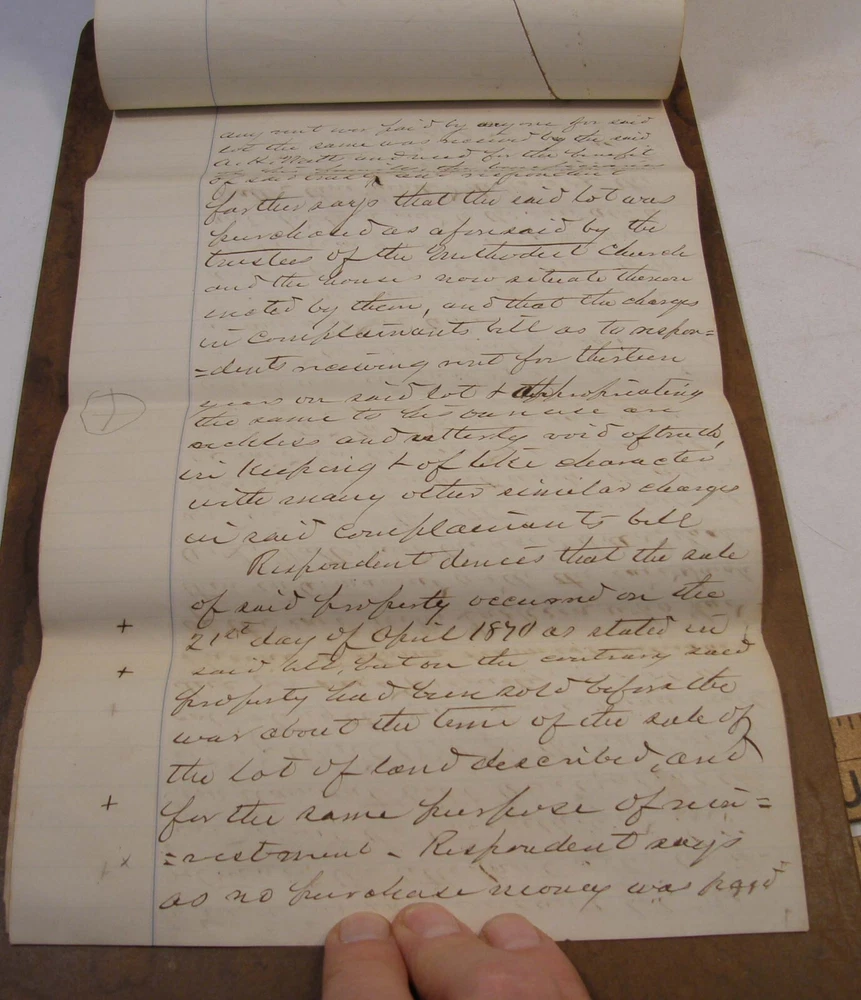 any rent was paid by any one for said
lot the same was received by the said
A. H. Watt and used for the benefit
of said trust, and respondent
further says that the said lot was
purchased as aforesaid by the
trustees of the Methodist Church
and the house now situate thereon
erected by them, and that the charges
in complainants bill as to respon=
=dents receiving rent for thirteen
years on said lot & appropriating
the same to his own use are
reckless and utterly void of truth,
in keeping & of like character
with many other similar charges
in said complainants bill
Respondent denies that the sale
of said property occurred on the
21st day of April 1870 as stated in
said bill, but on the contrary said
property had been sold before the
war about the time of the sale of
the lot of land described, and
for the same purpose of rein=
=vestment - Respondent says
as no purchase money was paid